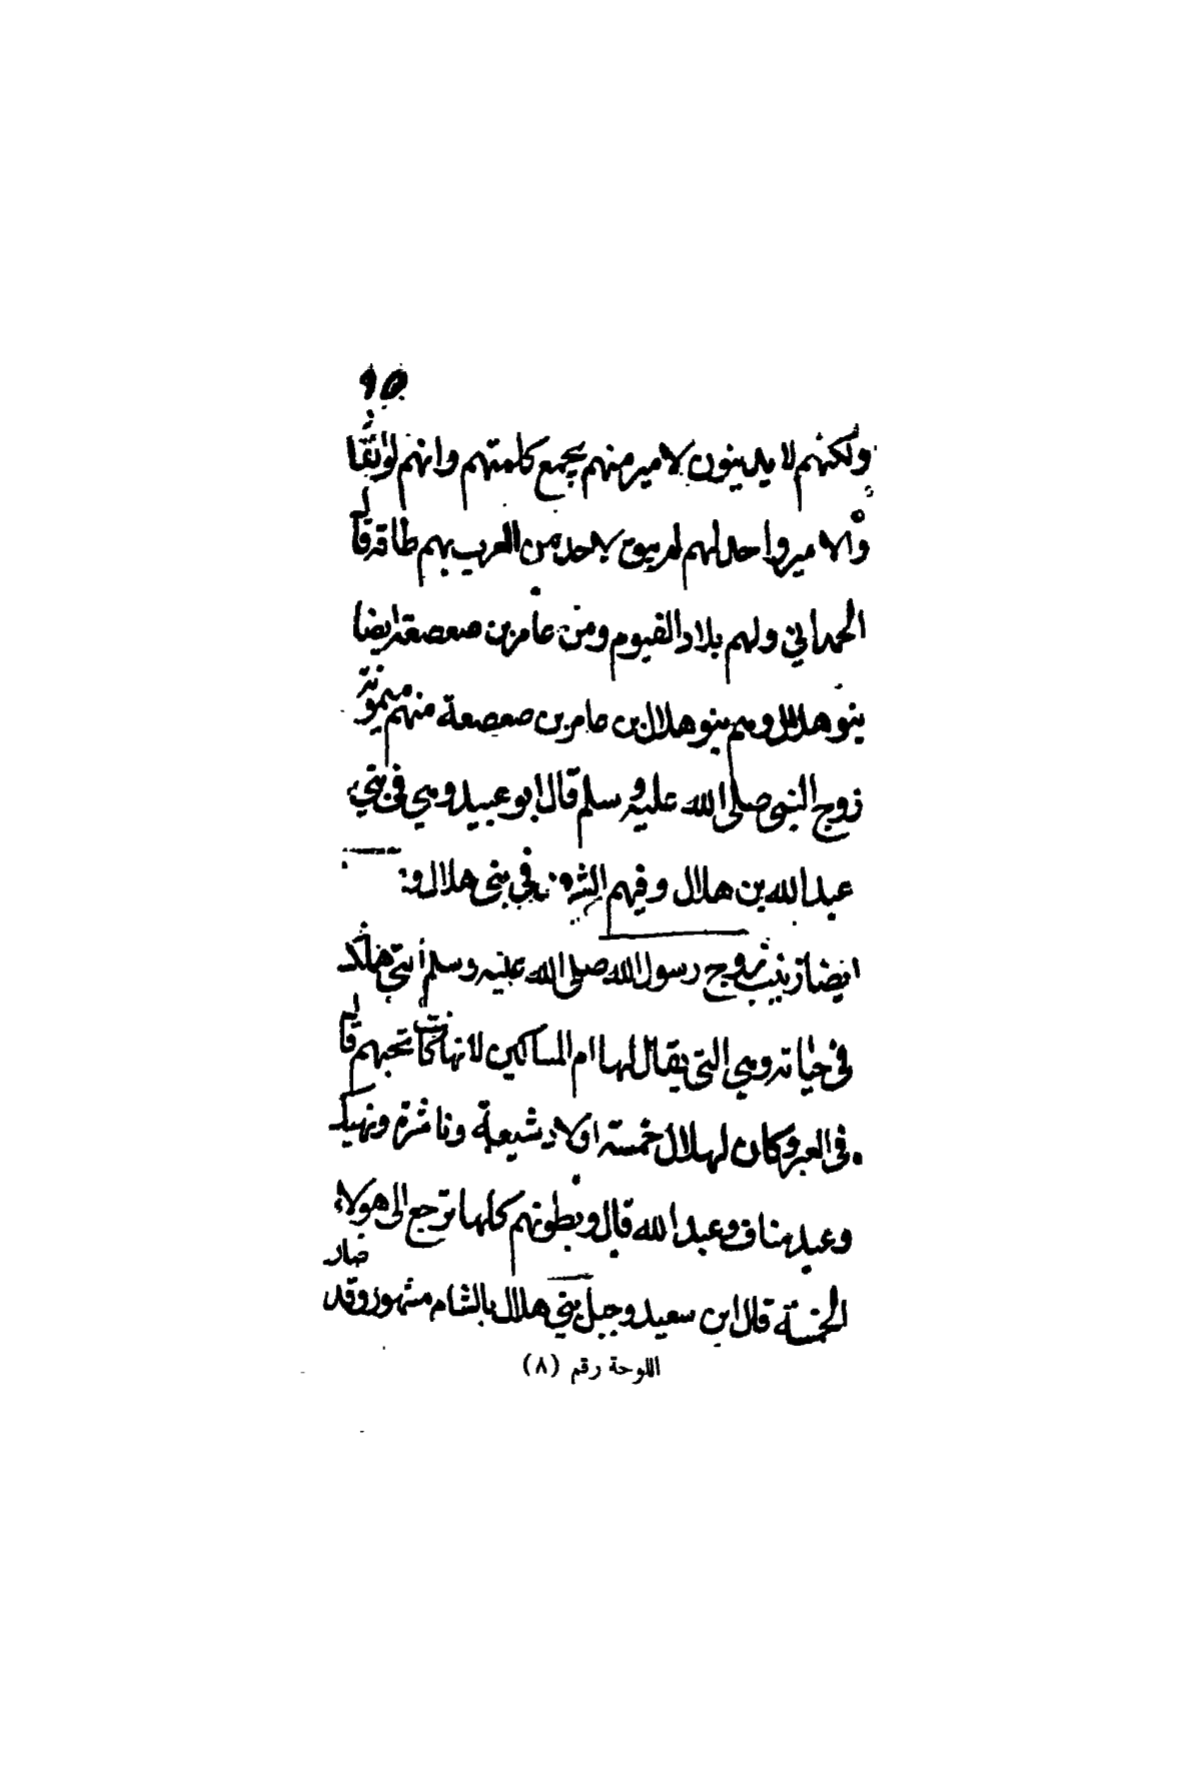 ٩٥
ولكنهم لا يدينون لامير منهم يجمع كلمتهم وانهم لو اتفقوا
والامير واحد لهم لم يبق لاحد من العرب بهم طاقة قال
الحمداني ولهم بلاد الفيوم ومن عامر بن صعصعة ايضا
بنو هلال وهم بنو هلال بن عامر بن صعصعة منهم ميمونة
زوج النبي صلى الله عليه وسلم قال ابو عبيد وهي في بني
عبد الله بن هلال وفيهم في بني هلال و
ايضا زينب زوج رسول الله صلى الله عليه وسلم التي هلكت
في حياته وهي التي يقال لها ام المساكين لانها كانت تحبهم قال
في العبر وكان لهلال خمسة اولاد شيعة وناشرة ونهيك
وعبد مناف وعبد الله قال وبطونهم كلها ترجع الى هولاء
الخمسة قال ابن سعيد وجبل بني هلال بالشام مشهور وقد صار
اللوحة رقم (٨)